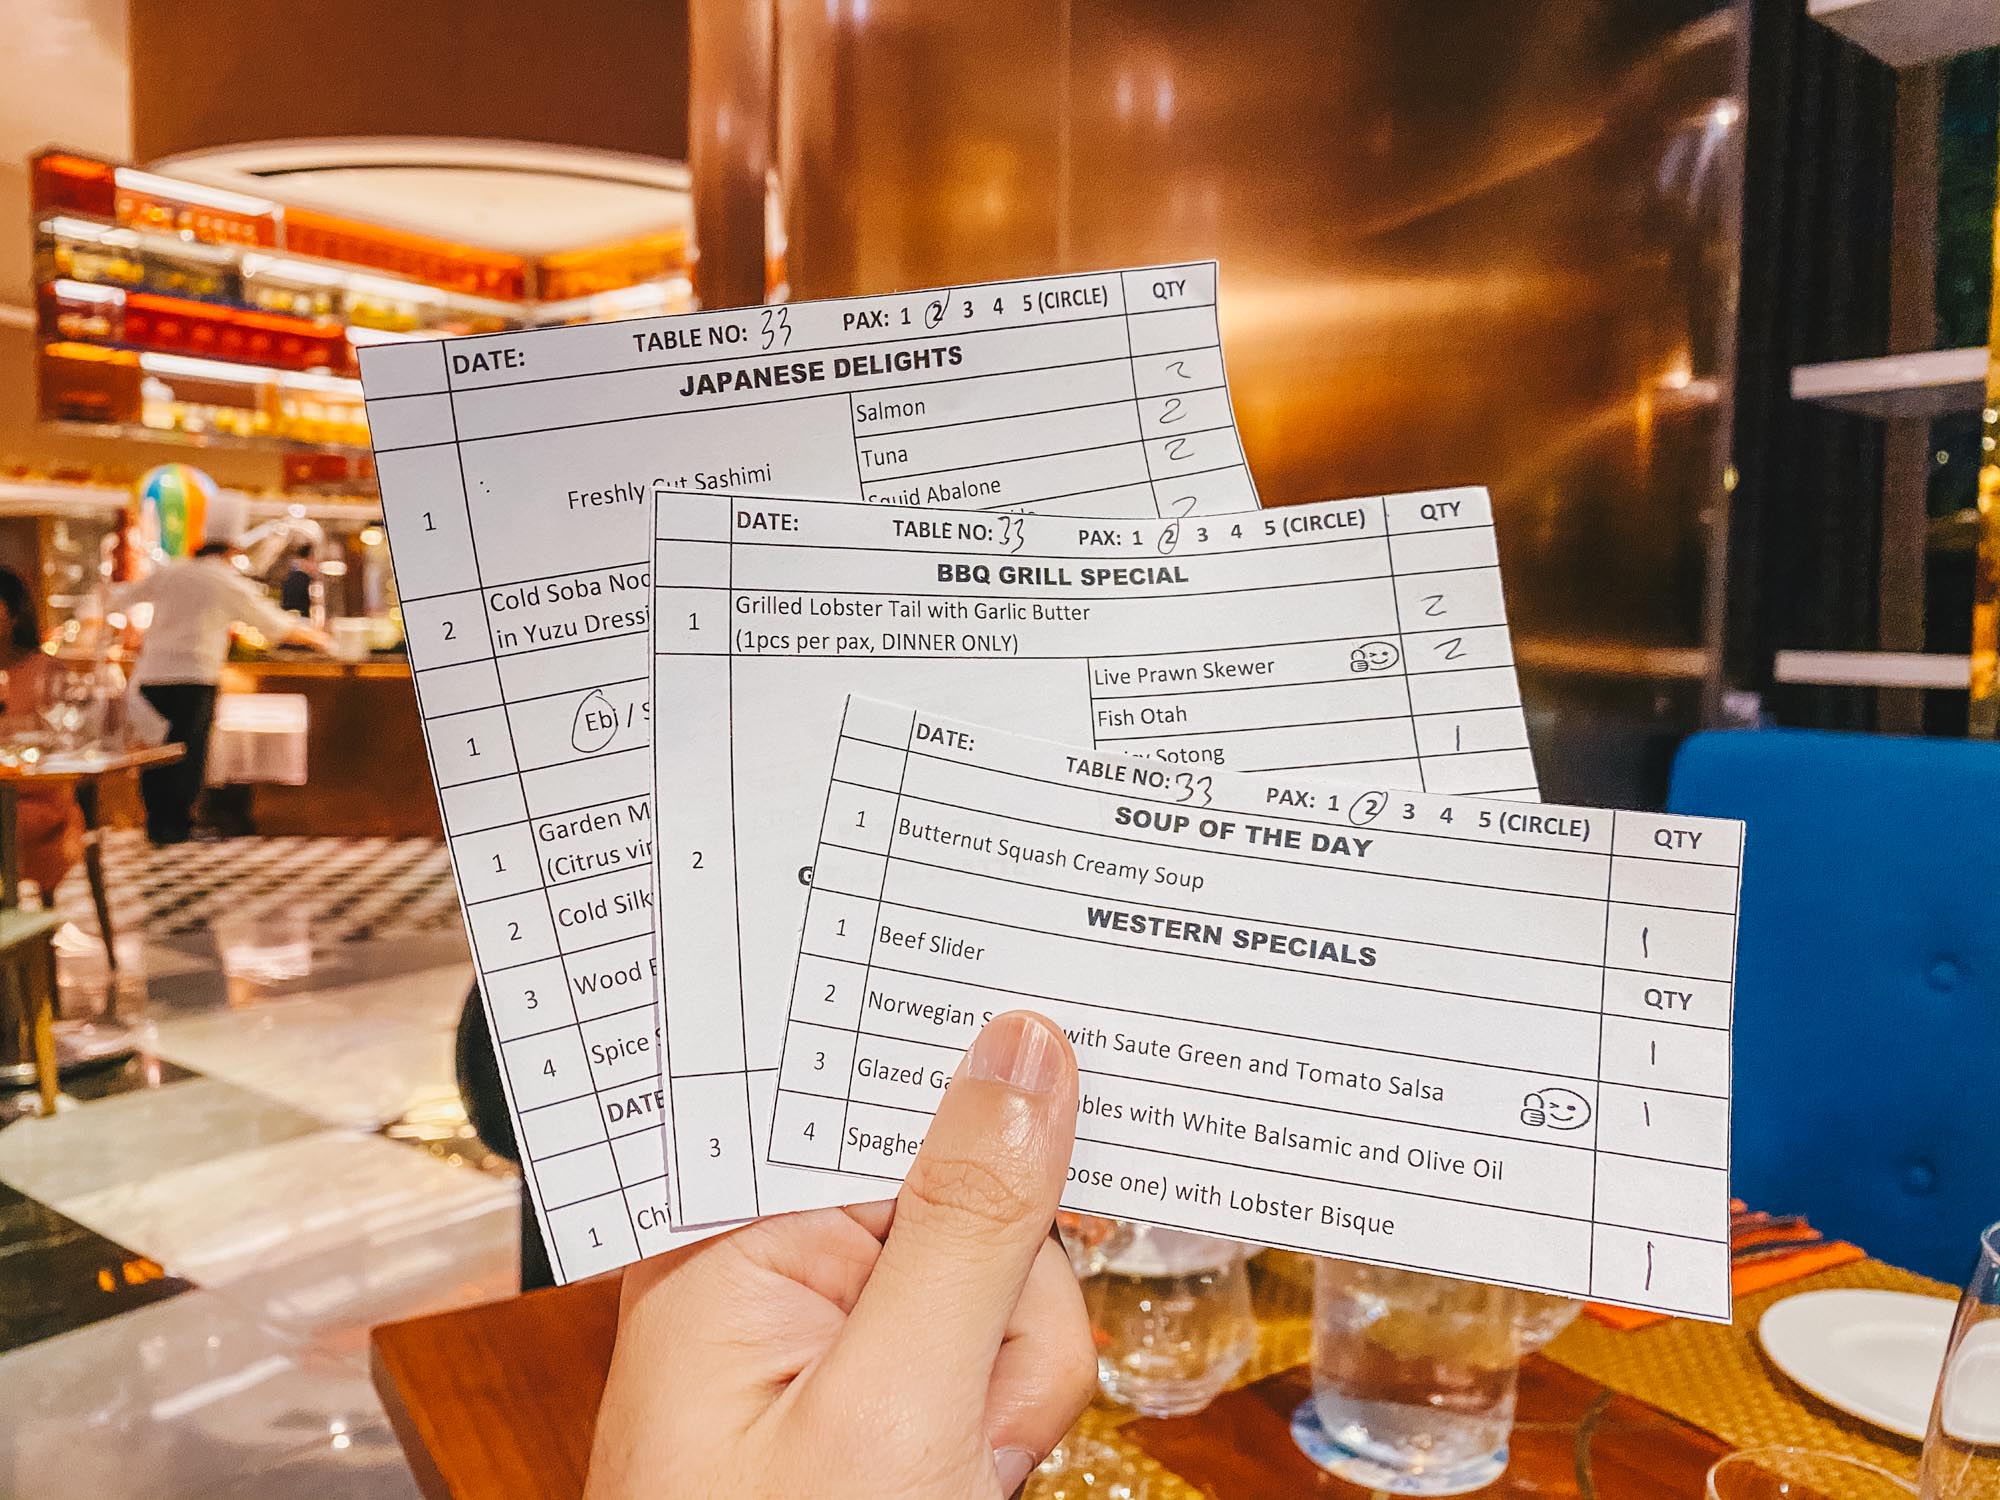 DATE: TABLE NO: 33 PAX: 1 2 3 4 5 (CIRCLE) QTY
JAPANESE DELIGHTS
Salmon 2
Tuna 2
1 Freshly Cut Sashimi
Squid Abalone 2
2
2 Cold Soba
in Yuzu
1 Ebi /
1 Garden
(Citrus
2 Cold
3 Wood
4 Spice
DATE
1
DATE: TABLE NO: 33 PAX: 1 2 3 4 5 (CIRCLE) QTY
BBQ GRILL SPECIAL
1 Grilled Lobster Tail with Garlic Butter 2
(1pcs per pax, DINNER ONLY)
Live Prawn Skewer 2
Fish Otah
Sotong 1
2
3
DATE: TABLE NO: 33 PAX: 1 2 3 4 5 (CIRCLE) QTY
SOUP OF THE DAY
1 Butternut Squash Creamy Soup 1
WESTERN SPECIALS QTY
1 Beef Slider 1
2 Norwegian with Saute Green and Tomato Salsa 1
3 Glazed with White Balsamic and Olive Oil
4 one) with Lobster Bisque 1